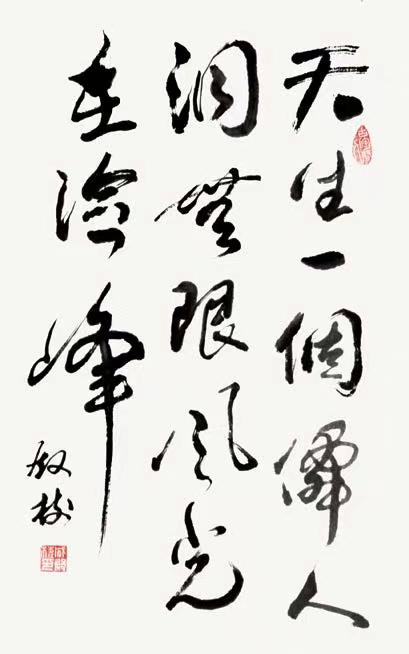 天生一個僊人
洞無限風光
在險峰